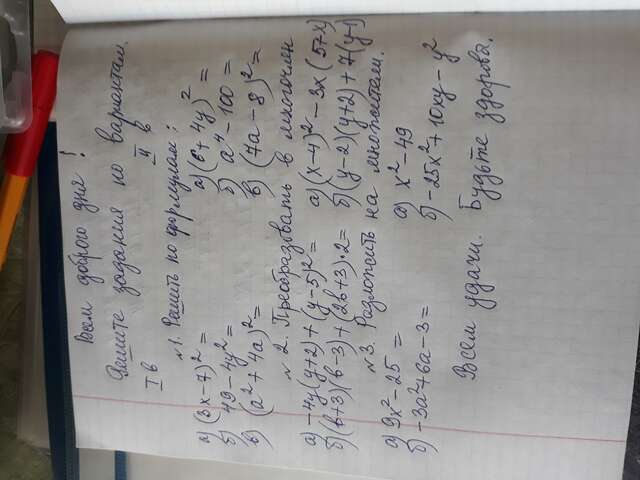 Всем доброго дня!
Решите задания по вариантам.
I в II в
№1. Решить по формулам:
а) (3x-7)² = а) (6+4y)² =
б) 49-4y² = б) a⁴-100 =
в) (a²+4a)² = в) (7a-8)² =
№2. Преобразовать в многочлен
а) -4y(y+2)+(y-5)² = а) (x-4)²-3x(5+x)
б) (b+3)(b-3)+(2b+3)·2 = б) (y-2)(y+2)+7(y-1)
№3. Разложить на множители.
а) 9x²-25 = а) x²-49
б) -3a²+6a-3 = б) -25x²+10xy-y²
Всем удачи. Будьте здоровы.